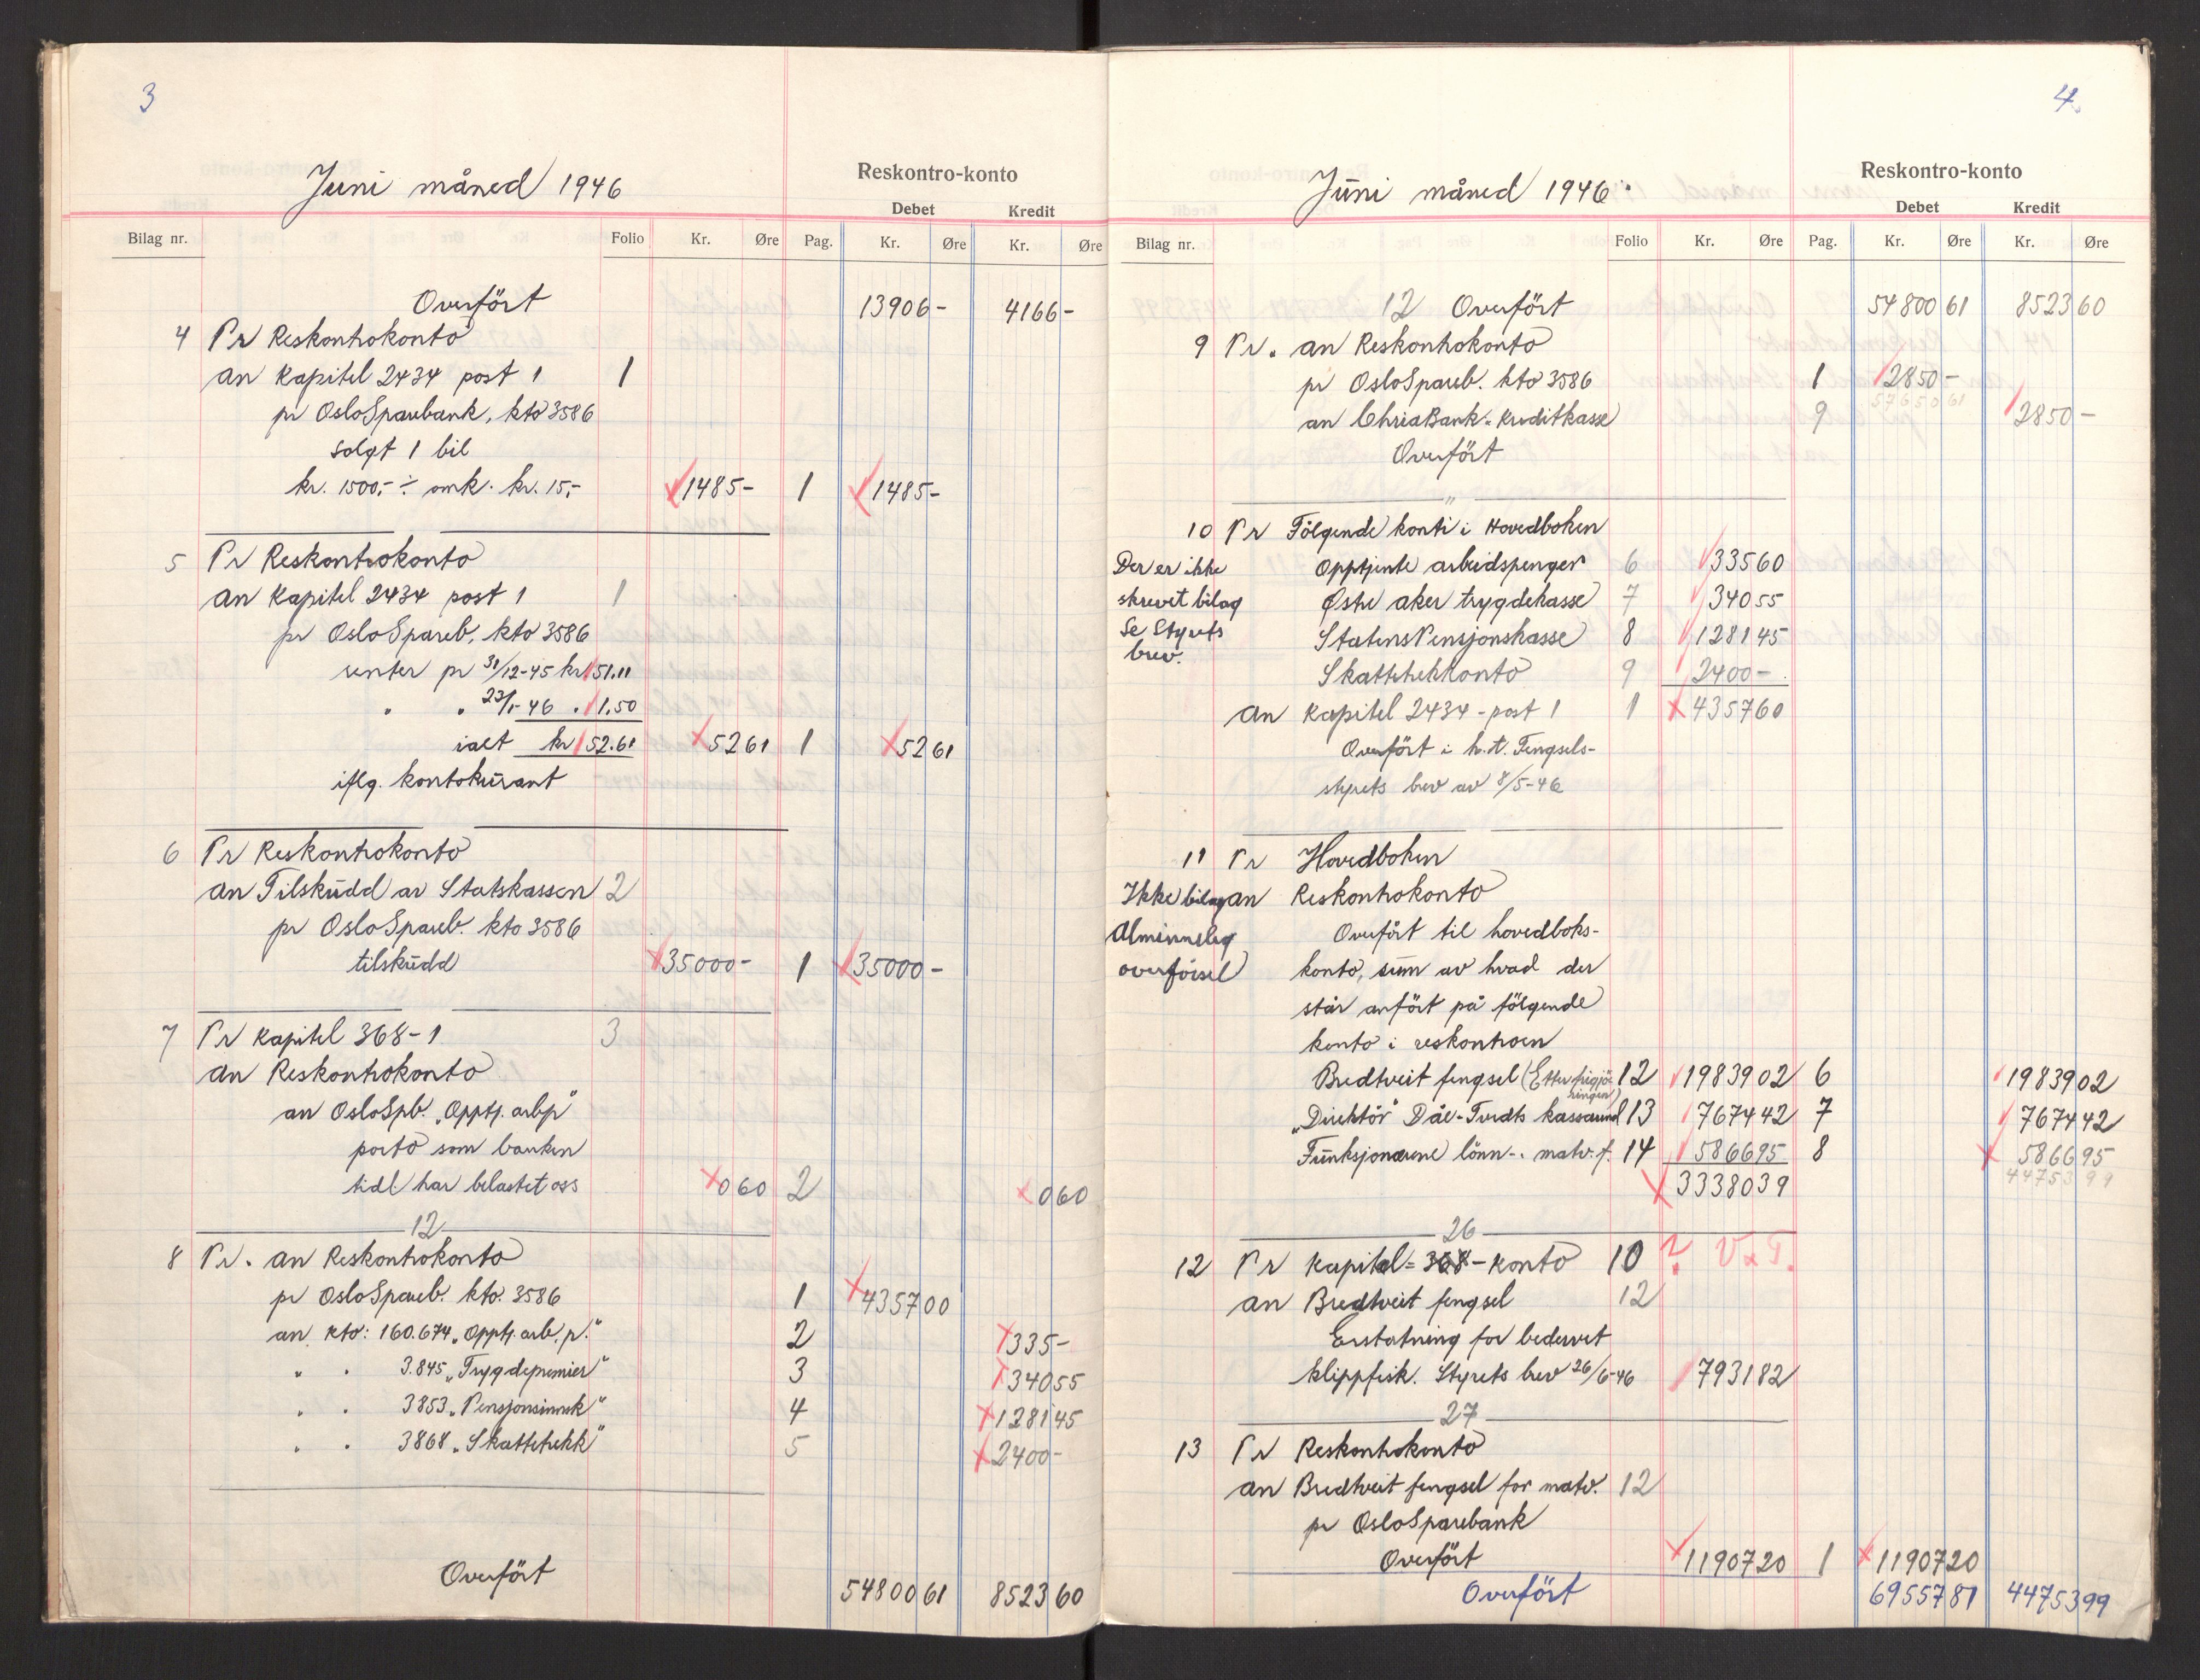 3
Juni måned 1946
Reskontro-konto
Debet Kredit
Bilag nr. Folio Kr. Øre Pag. Kr. Øre Kr. Øre
Overfört 13906- 4166-
4 Pr Reskontrokonto
an Kapitel 2434 post 1 1
pr Oslo Sparebank, kto 3586
solgt 1 bil
kr. 1500,- ÷ omk. kr. 15,- 1485- 1 1485-
5 Pr Reskontrokonto
an Kapitel 2434 post 1 1
pr Oslo Spareb. kto 3586
renter pr 31/12-45 kr 51.11
" " 23/1-46 " 1.50
ialt kr 52.61 52 61 1 52 61
iflg. kontokurant
6 Pr Reskontrokonto
an Tilskudd av Statskassen 2
pr Oslo Spareb. kto 3586
tilskudd 35000- 1 35000-
7 Pr Kapitel 368-1 3
an Reskontrokonto
an Oslo Spb. "Opptj. arbp"
porto som banken
tidl. har belastet oss 0 60 2 0 60
12
8 Pr. an Reskontrokonto
pr Oslo Spareb. kto. 3586 1 4357 00
an kto: 160.674 "Opptj. arb. p." 2 335-
" " 3.845 "Trygdepremier" 3 340 55
" " 3853 "Pensjonsinnsk" 4 1281 45
" " 3868 "Skattetrekk" 5 2400-
Overfört 54800 61 8523 60
4.
Juni måned 1946.
Reskontro-konto
Debet Kredit
Bilag nr. Folio Kr. Øre Pag. Kr. Øre Kr. Øre
12 Overfört 54800 61 8523 60
9 Pr. an Reskontrokonto
pr Oslo Spareb. kto 3586 1 2850-
57650 61
an Chria Bank- Kreditkasse 9 2850-
Overfört
"
10 Pr Fölgende konti i Hovedboken
Der er ikke Opptjente arbeidspenger 6 335 60
skrevet bilag Østre aker trygdekasse 7 340 55
Se Styrets Statens Pensjonskasse 8 1281 45
brev. Skattetrekkonto 9 2400-
an Kapitel 2434 - post 1 1 4357 60
Overfört i h.t. Fengsels-
styrets brev av 8/5-46
11 Pr Hovedboken
Ikke bilag an Reskontrokonto
Alminnelig Overfört til hovedboks-
overförsel konto, sum av hvad der
står anfört på fölgende
konto i reskontroen
Bredtveit fengsel (Etter frigjö-ringen) 12 19839 02 6 19839 02
"Direktör" Dåe-Tvedts kassamal 13 7674 42 7 7674 42
Funksjonærene lönn-. matv. f. 14 5866 95 8 5866 95
33380 39 44753 99
26
12 Pr Kapital= 368 - konto 10 ? V & T.
an Bredtveit fengsel 12
Erstatning for bedervet
klippfisk. Styrets brev 26/6-46 7931 82
27
13 Pr Reskontrokonto
an Bredtveit fengsel for matv. 12
pr Oslo Sparebank
Overfört 11907 20 1 11907 20
Overfört 69557 81 44753 99